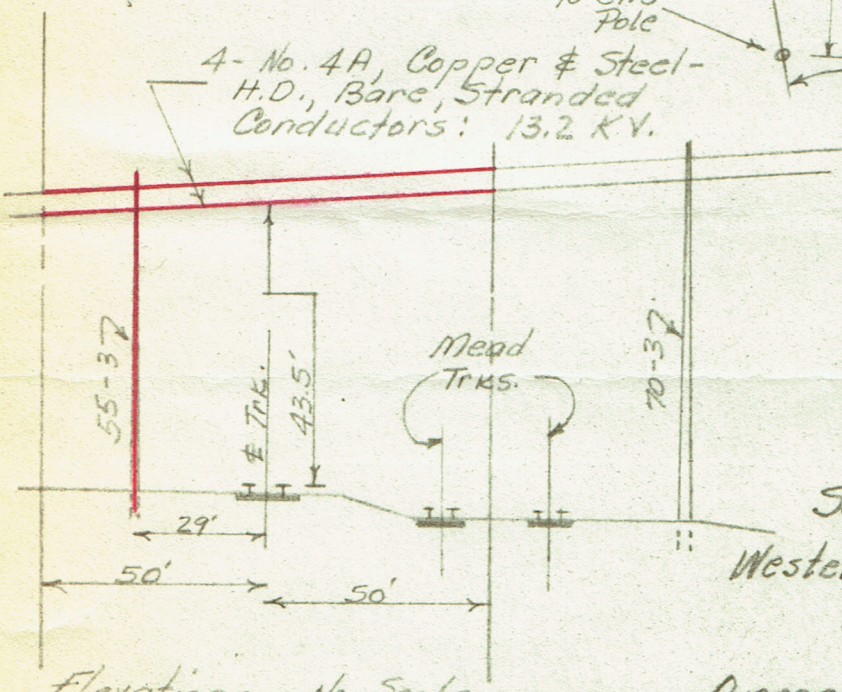 Pole
4- No. 4A, Copper & Steel-
H.D., Bare, Stranded
Conductors: 13.2 KV.
55-3
℄ Trk.
43.5'
Mead
Trks.
70-3
29'
50'
50'
Elevation - No Scale